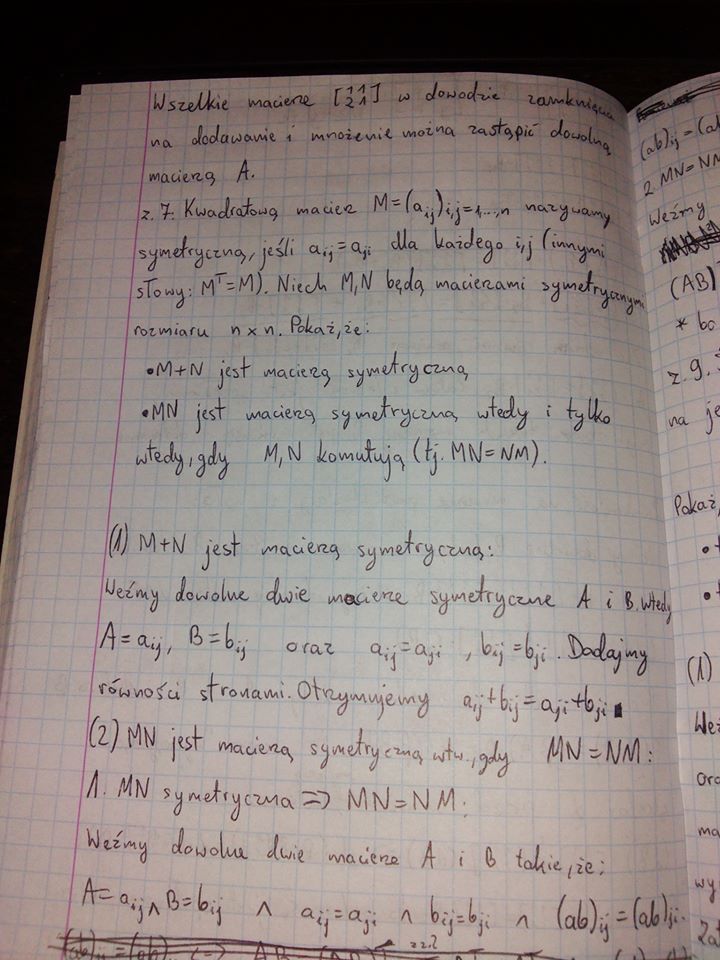 Wszelkie macierze [1 1 2 1] w dowodzie zamknięcia
na dodawanie i mnożenie można zastąpić dowolną
macierzą A.
z. 7. Kwadratową macierz M=(aij)i,j=1...,n nazywamy
symetryczną, jeśli aij=aji dla każdego i,j (innymi
słowy: Mᵀ=M). Niech M,N będą macierzami symetrycznymi
rozmiaru n×n. Pokaż, że:
•M+N jest macierzą symetryczną
•MN jest macierzą symetryczną wtedy i tylko
wtedy, gdy M,N komutują (tj. MN=NM).
(1) M+N jest macierzą symetryczną:
Weźmy dowolne dwie macierze symetryczne A i B. Wtedy
A=aij, B=bij oraz aij=aji, bij=bji. Dodajmy
równości stronami. Otrzymujemy aij+bij=aji+bji ∎
(2) MN jest macierzą symetryczną wtw., gdy MN=NM:
1. MN symetryczna => MN=NM:
Weźmy dowolne dwie macierze A i B takie, że:
A=aij ∧ B=bij ∧ aij=aji ∧ bij=bji ∧ (ab)ij=(ab)ji.
(ab)ij=(a
2. MN=NM
Weźmy
(AB)
* bo
z. 9.
na je
Pokaż,
•
•
(1)
Weź
ora
ma
wy
Zat